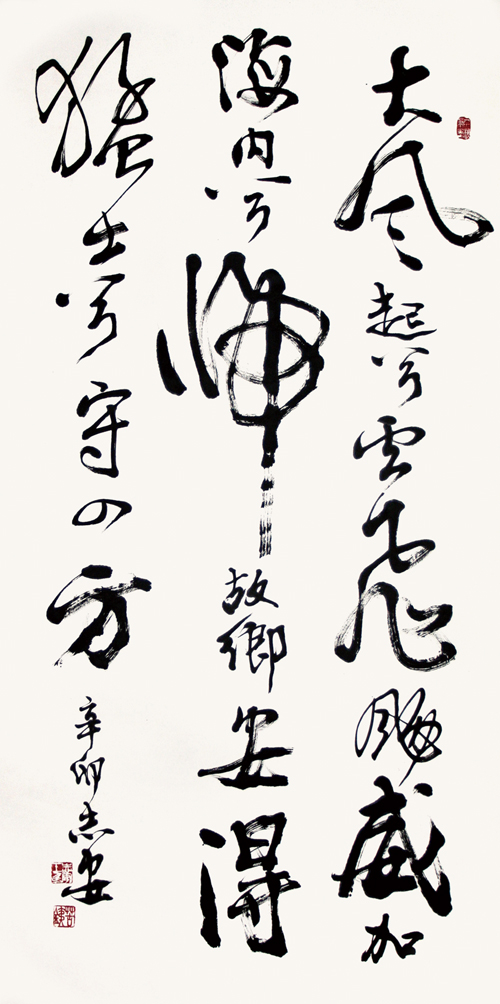 大風起兮雲飛威加
海内兮歸故鄉安得
猛士兮守四方
辛卯志安